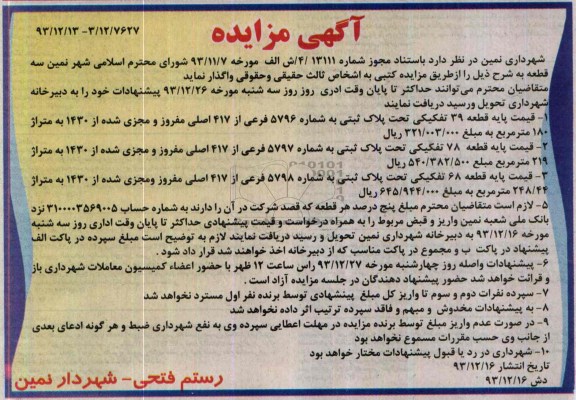 آگهی مزایده
۹۳/۱۲/۱۳ -۳/۱۲/۷۶۲۷
شهرداری نمین در نظر دارد باستناد مجوز شماره ۱۳۱۱۱ /۴/ش الف مورخه ۹۳/۱۱/۷ شورای محترم اسلامی شهر نمین سه
قطعه به شرح ذیل را ازطریق مزایده کتبی به اشخاص ثالث حقیقی وحقوقی واگذار نماید
متقاضیان محترم می‌توانند حداکثر تا پایان وقت ادری روز روز سه شنبه مورخه ۹۳/۱۲/۲۶ پیشنهادات خود را به دبیرخانه
شهرداری تحویل ورسید دریافت نمایند
۱- قیمت پایه قطعه ۳۹ تفکیکی تحت پلاک ثبتی به شماره ۵۷۹۶ فرعی از ۴۱۷ اصلی مفروز و مجزی شده از ۱۴۳۰ به متراژ
۱۸۰ مترمربع به مبلغ ۳۲۱/۰۰۳/۰۰۰ ریال
۲- قیمت پایه قطعه ۷۸ تفکیکی تحت پلاک ثبتی به شماره ۵۷۹۷ فرعی از ۴۱۷ اصلی مفروز و مجزی شده از ۱۴۳۰ به متراژ
۲۱۹ مترمربع مبلغ ۵۴۰/۳۸۲/۵۰۰ ریال
۳- قیمت پایه قطعه ۶۸ تفکیکی تحت پلاک ثبتی به شماره ۵۷۹۸ فرعی از ۴۱۷ اصلی مفروز ومجزی شده از ۱۴۳۰ به متراژ
۲۴۸/۴۴ مترمربع به مبلغ ۶۴۵/۹۴۴/۰۰۰ ریال
۵- لازم است متقاضیان محترم مبلغ پنج درصد هر قطعه که قصد شرکت در آن را دارند به شماره حساب ۳۱۰۰۰۰۳۵۶۹۰۰۵ نزد
بانک ملی شعبه نمین واریز و قبض مربوط را به همراه درخواست و قیمت پیشنهادی حداکثر تا پایان وقت اداری روز سه شنبه
مورخه ۹۳/۱۲/۱۶ به دبیرخانه شهرداری نمین تحویل و رسید دریافت نمایند لازم به توضیح است مبلغ سپرده در پاکت الف
پیشنهاد در پاکت ب و مجموع در پاکت مناسب که از دبیرخانه اخذ خواهند شد قرار داد شود .
۶- پیشنهادات واصله روز چهارشنبه مورخه ۹۳/۱۲/۲۷ راس ساعت ۱۲ ظهر با حضور اعضاء کمیسیون معاملات شهرداری باز
و قرائت خواهد شد حضور پیشنهاد دهندگان در جلسه مزایده آزاد است .
۷- سپرده نفرات دوم و سوم تا واریز کل مبلغ پیننشهادی توسط برنده نفر اول مسترد نخواهد شد
۸- به پیشنهادات مخدوش و مبهم و فاقد سپرده ترتیب اثر داده نخواهد شد
۹- در صورت عدم واریز مبلغ توسط برنده مزایده در مهلت اعطایی سپرده وی به نفع شهرداری ضبط و هر گونه ادعای بعدی
از جانب وی حسب مقررات مسموع نخواهد بود
۱۰-شهرداری در رد یا قبول پیشنهادات مختار خواهد بود
تاریخ انتشار ۹۳/۱۲/۱۶
دش ۹۳/۱۲/۱۶
رستم فتحی- شهردار نمین